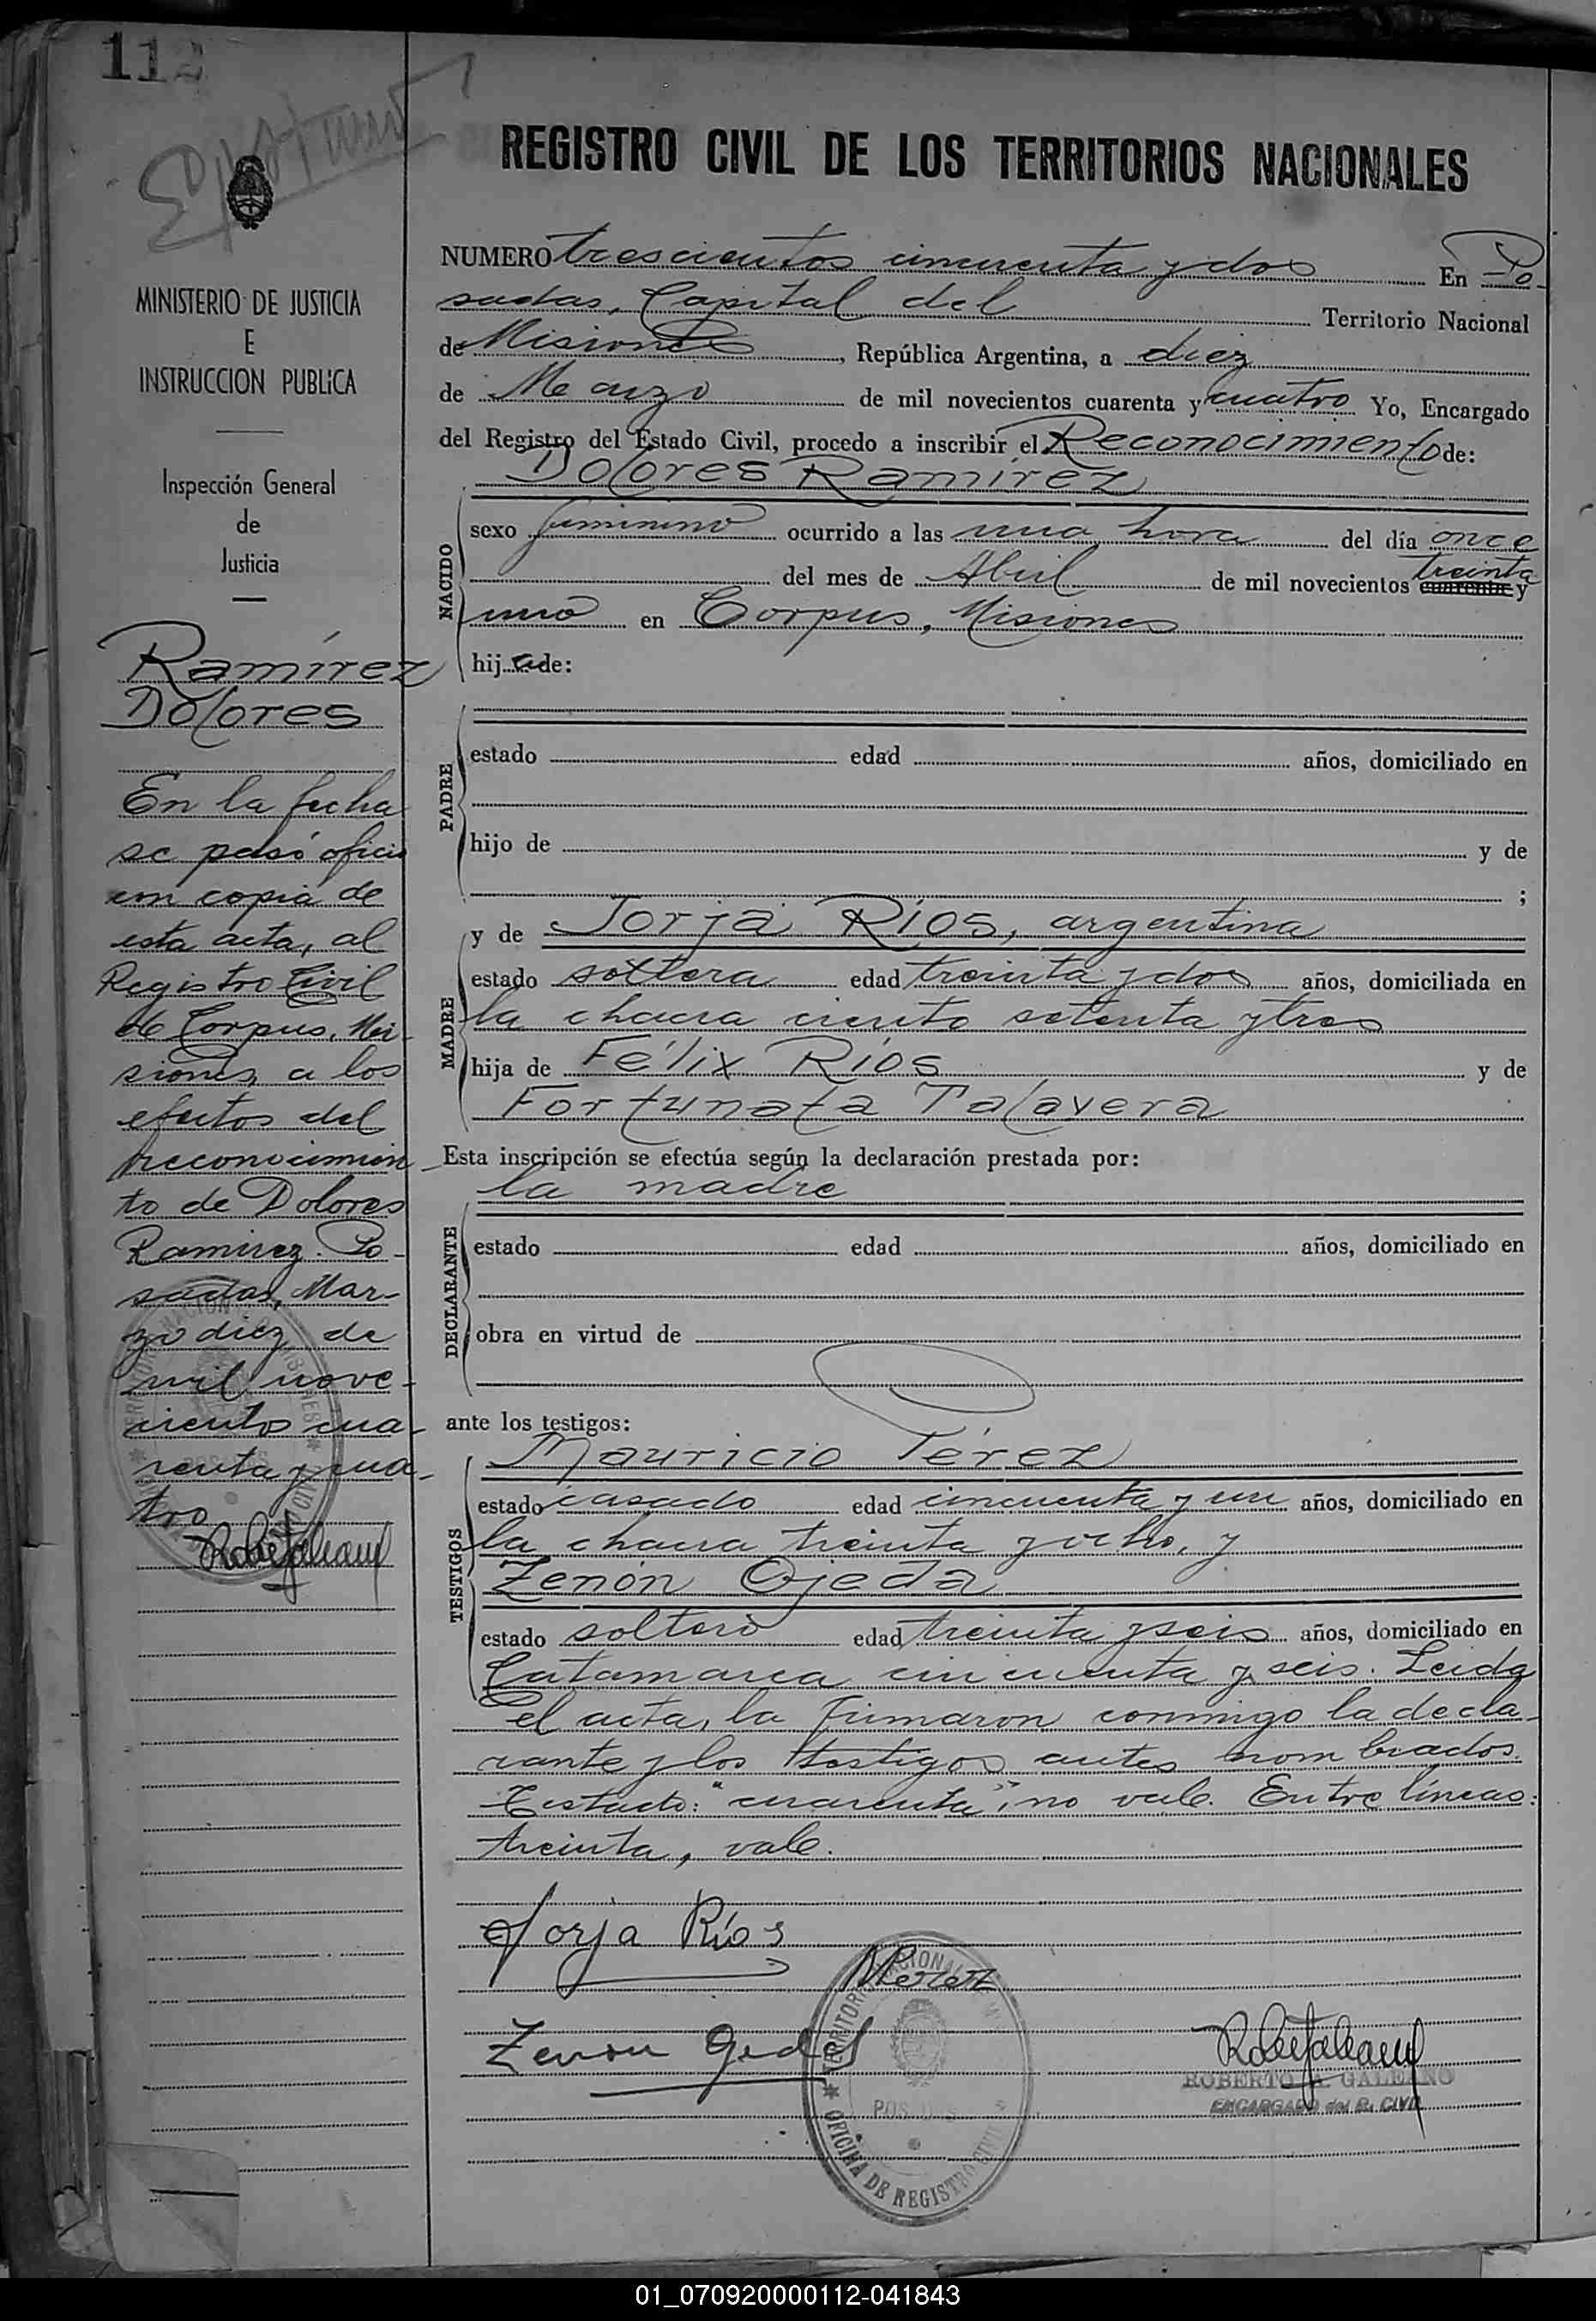 112
REGISTRO CIVIL DE LOS TERRITORIOS NACIONALES
MINISTERIO DE JUSTICIA
E
INSTRUCCION PUBLICA
Inspección General
de
Justicia
Ramírez
Dolores
En la fecha
se pasó oficio
con copia de
esta acta, al
Registro Civil
de Corpus, Mi-
siones, a los
efectos del
reconocimien
to de Dolores
Ramirez. Po-
sadas, Mar-
zo diez de
mil nove-
cientos cua-
renta y cua-
tro
NUMERO trescientos cincuenta y dos En Po-
sadas, Capital del Territorio Nacional
de Misiones, República Argentina, a diez
de Marzo de mil novecientos cuarenta y cuatro Yo, Encargado
del Registro del Estado Civil, procedo a inscribir el Reconocimiento de:
Dolores Ramírez
NACIDO
sexo femenino ocurrido a las una hora del día once
del mes de Abril de mil novecientos treinta cuarenta y
uno en Corpus, Misiones
hija de:
PADRE
estado edad años, domiciliado en
hijo de y de
;
MADRE
y de Jorja Ríos, argentina
estado soltera edad treinta y dos años, domiciliada en
la chacra ciento setenta y tres
hija de Félix Ríos y de
Fortunata Talavera
Esta inscripción se efectúa según la declaración prestada por:
la madre
DECLARANTE
estado edad años, domiciliado en
obra en virtud de
ante los testigos:
TESTIGOS
Mauricio Pérez
estado casado edad cincuenta y un años, domiciliado en
la chacra treinta y ocho, y
Zenón Ojeda
estado soltero edad treinta y seis años, domiciliado en
Catamarca cincuenta y seis. Leida
el acta, la firmaron conmigo la decla-
rante y los testigos antes nombrados.
Testado: "cuarenta", no vale. Entre líneas:
treinta, vale.
Jorja Ríos
MPerez
Zenon Ojeda
POSADAS
OFICINA DE REGISTRO CIVIL
ROBERTO A. GALEANO
ENCARGADO del R. CIVIL
01_070920000112-041843